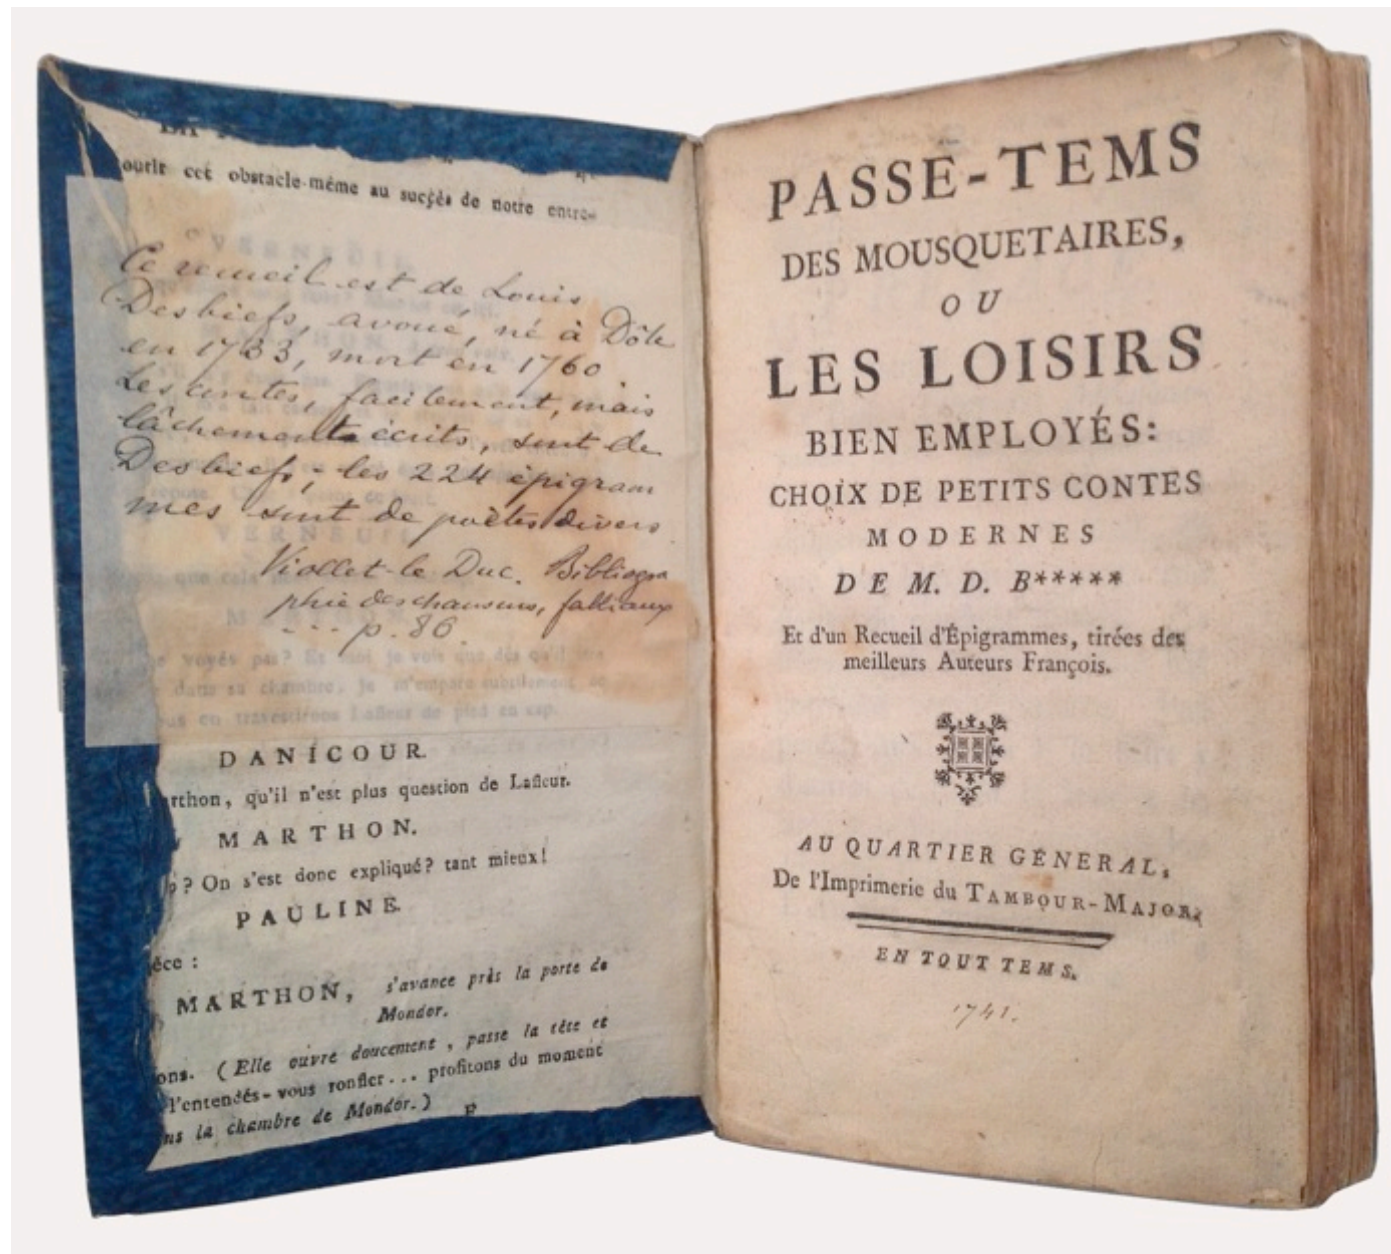 ourir cet obstacle-même au succès de notre entre-
Ce recueil est de Louis
Desbiefs, avoué, né à Dôle
en 1733, mort en 1760
Les contes, facilement, mais
lâchements écrits, sont de
Desbiefs; les 224 épigram
mes sont de poètes divers
Viollet-le Duc. Bibliogra
phie des chansons, fabliaux
--- p. 86.
VERNEUIL
que cela
voyés pas? Et moi je vois que dès qu'il
dans sa chambre, je m'empare subtilement de
us en travestirons Lafleur de pied en cap.
DANICOUR.
rthon, qu'il n'est plus question de Lafleur.
MARTHON.
? On s'est donc expliqué? tant mieux!
PAULINE.
éce :
MARTHON, s'avance près la porte de
Mondor.
ons. (Elle ouvre doucement, passe la tête et
l'entendés-vous ronfler... profitons du moment
ns la chambre de Mondor.)
PASSE-TEMS
DES MOUSQUETAIRES,
OU
LES LOISIRS
BIEN EMPLOYÉS:
CHOIX DE PETITS CONTES
MODERNES
DE M. D. B*****
Et d'un Recueil d'Épigrammes, tirées des
meilleurs Auteurs François.
AU QUARTIER GÉNERAL,
De l'Imprimerie du TAMBOUR-MAJOR,
EN TOUT TEMS.
1741.